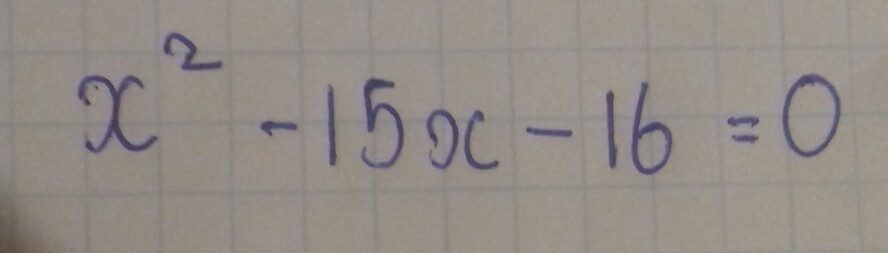 x² - 15x - 16 = 0